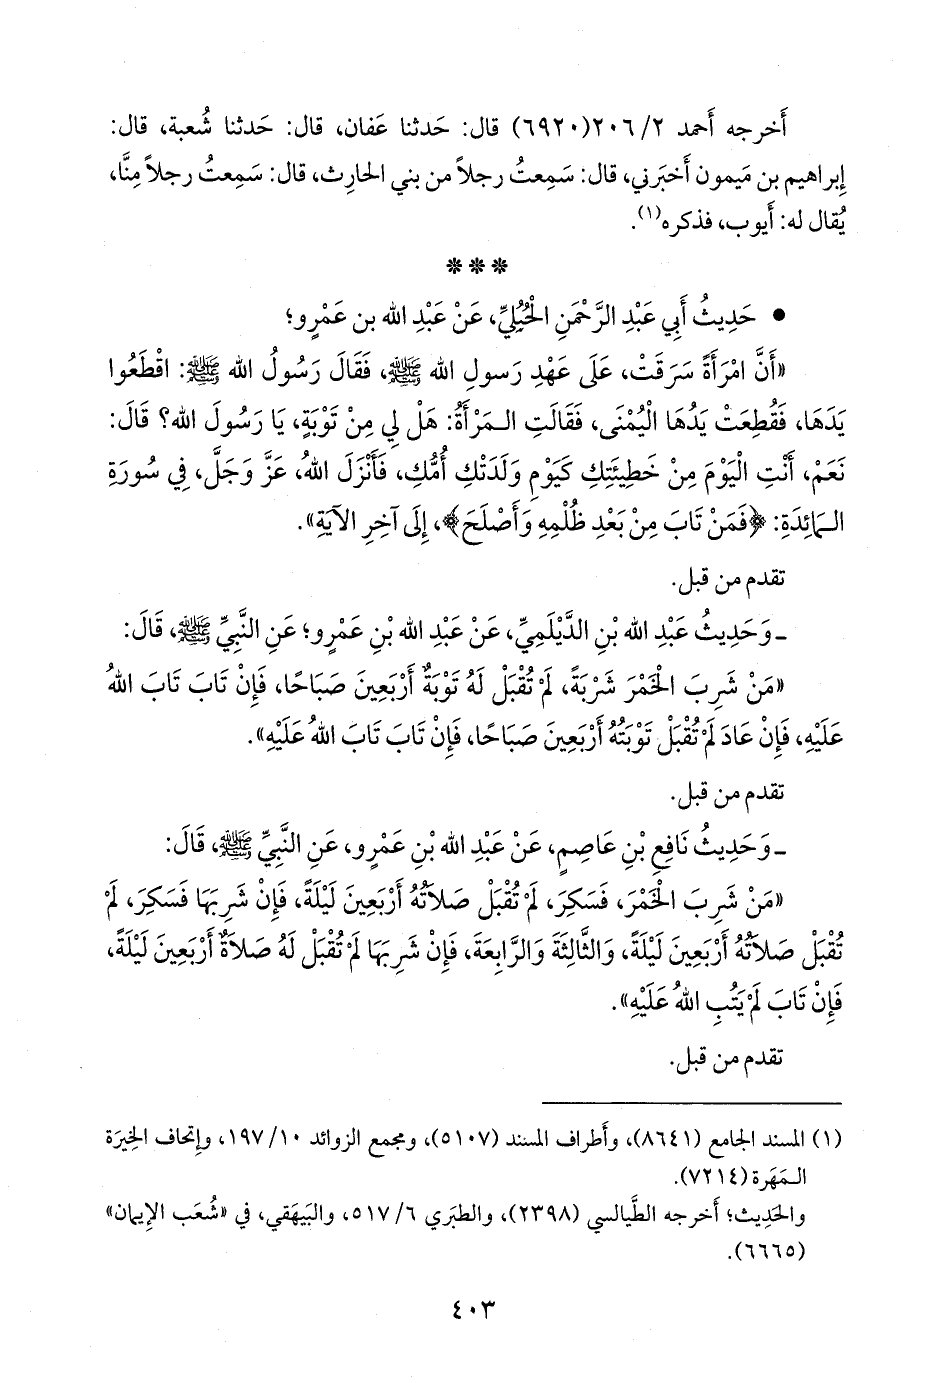 أَخرجه أَحمد ٢/ ٢٠٦(٦٩٢٠) قال: حَدثنا عَفان، قال: حَدثنا شُعبة، قال:
إِبراهيم بن مَيمون أَخبَرني، قال: سَمِعتُ رجلاً من بني الحارِث، قال: سَمِعتُ رجلاً مِنَّا،
يُقال له: أَيوب، فذكره(١).
***
• حَدِيثُ أَبِي عَبْدِ الرَّحْمَنِ الْحُبُلِيِّ، عَنْ عَبْدِ الله بن عَمْرٍو؛
«أَنَّ امْرَأَةً سَرَقَتْ، عَلَى عَهْدِ رَسولِ الله ﷺ، فَقَالَ رَسُولُ الله ﷺ: اقْطَعُوا
يَدَهَا، فَقُطِعَتْ يَدُهَا الْيُمْنَى، فَقَالَتِ الـمَرْأَةُ: هَلْ لِي مِنْ تَوْبَةٍ، يَا رَسُولَ الله؟ قَالَ:
نَعَمْ، أَنْتِ الْيَوْمَ مِنْ خَطِيئَتِكِ كَيَوْمِ وَلَدَتْكِ أُمُّكِ، فَأَنْزَلَ اللهُ، عَزَّ وَجَلَّ، فِي سُورَةِ
الـمَائِدَةِ: ﴿فَمَنْ تَابَ مِنْ بَعْدِ ظُلْمِهِ وَأَصْلَحَ﴾، إِلَى آخِرِ الآيَةِ».
تقدم من قبل.
ـ وَحَدِيثُ عَبْدِ الله بْنِ الدَّيْلَمِيِّ، عَنْ عَبْدِ الله بْنِ عَمْرٍو؛ عَنِ النَّبِيِّ ﷺ، قَالَ:
«مَنْ شَرِبَ الْخَمْرَ شَرْبَةً، لَمْ تُقْبَلْ لَهُ تَوْبَةٌ أَرْبَعِينَ صَبَاحًا، فَإِنْ تَابَ تَابَ اللهُ
عَلَيْهِ، فَإِنْ عَادَ لَمْ تُقْبَلْ تَوْبَتُهُ أَرْبَعِينَ صَبَاحًا، فَإِنْ تَابَ تَابَ اللهُ عَلَيْهِ».
تقدم من قبل.
ـ وَحَدِيثُ نَافِعِ بْنِ عَاصِمٍ، عَنْ عَبْدِ الله بْنِ عَمْرٍو، عَنِ النَّبِيِّ ﷺ، قَالَ:
«مَنْ شَرِبَ الْخَمْرَ، فَسَكِرَ، لَمْ تُقْبَلْ صَلَاتُهُ أَرْبَعِينَ لَيْلَةً، فَإِنْ شَرِبَهَا فَسَكِرَ، لَمْ
تُقْبَلْ صَلَاتُهُ أَرْبَعِينَ لَيْلَةً، وَالثَّالِثَةَ وَالرَّابِعَةَ، فَإِنْ شَرِبَهَا لَمْ تُقْبَلْ لَهُ صَلَاةٌ أَرْبَعِينَ لَيْلَةً،
فَإِنْ تَابَ لَمْ يَتُبِ اللهُ عَلَيْهِ».
تقدم من قبل.
(١) المسند الجامع (٨٦٤١)، وأطراف المسند (٥١٠٧)، ومجمع الزوائد ١٠/ ١٩٧، وإتحاف الخِيرَة
الـمَهَرة (٧٢١٤).
والحَدِيث؛ أَخرجه الطَّيالسي (٢٣٩٨)، والطبَري ٦/ ٥١٧، والبَيهَقي، في «شُعَب الإِيمان»
(٦٦٦٥).
٤٠٣